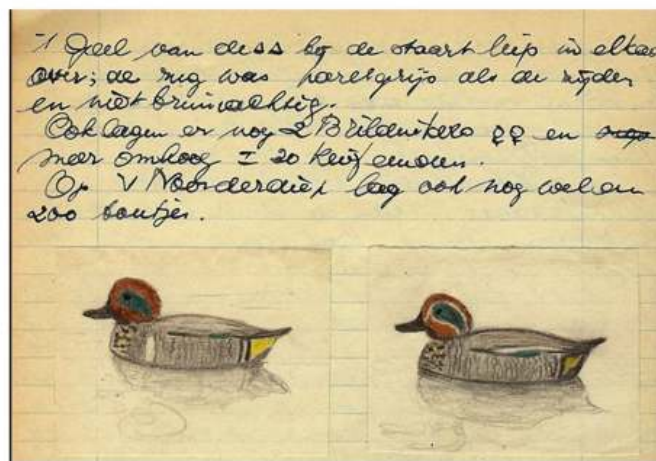 't Geel van dess bij de staart liep in elkaar
over; de rug was parelgrijs als de zijden
en niet bruinachtig.
Ook lagen er nog 2 Brilduikers ♀♀ en
meer omhoog ± 20 Kuifeenden.
Op 't Noorderdiep lag ook nog wel een
200 tontjes.